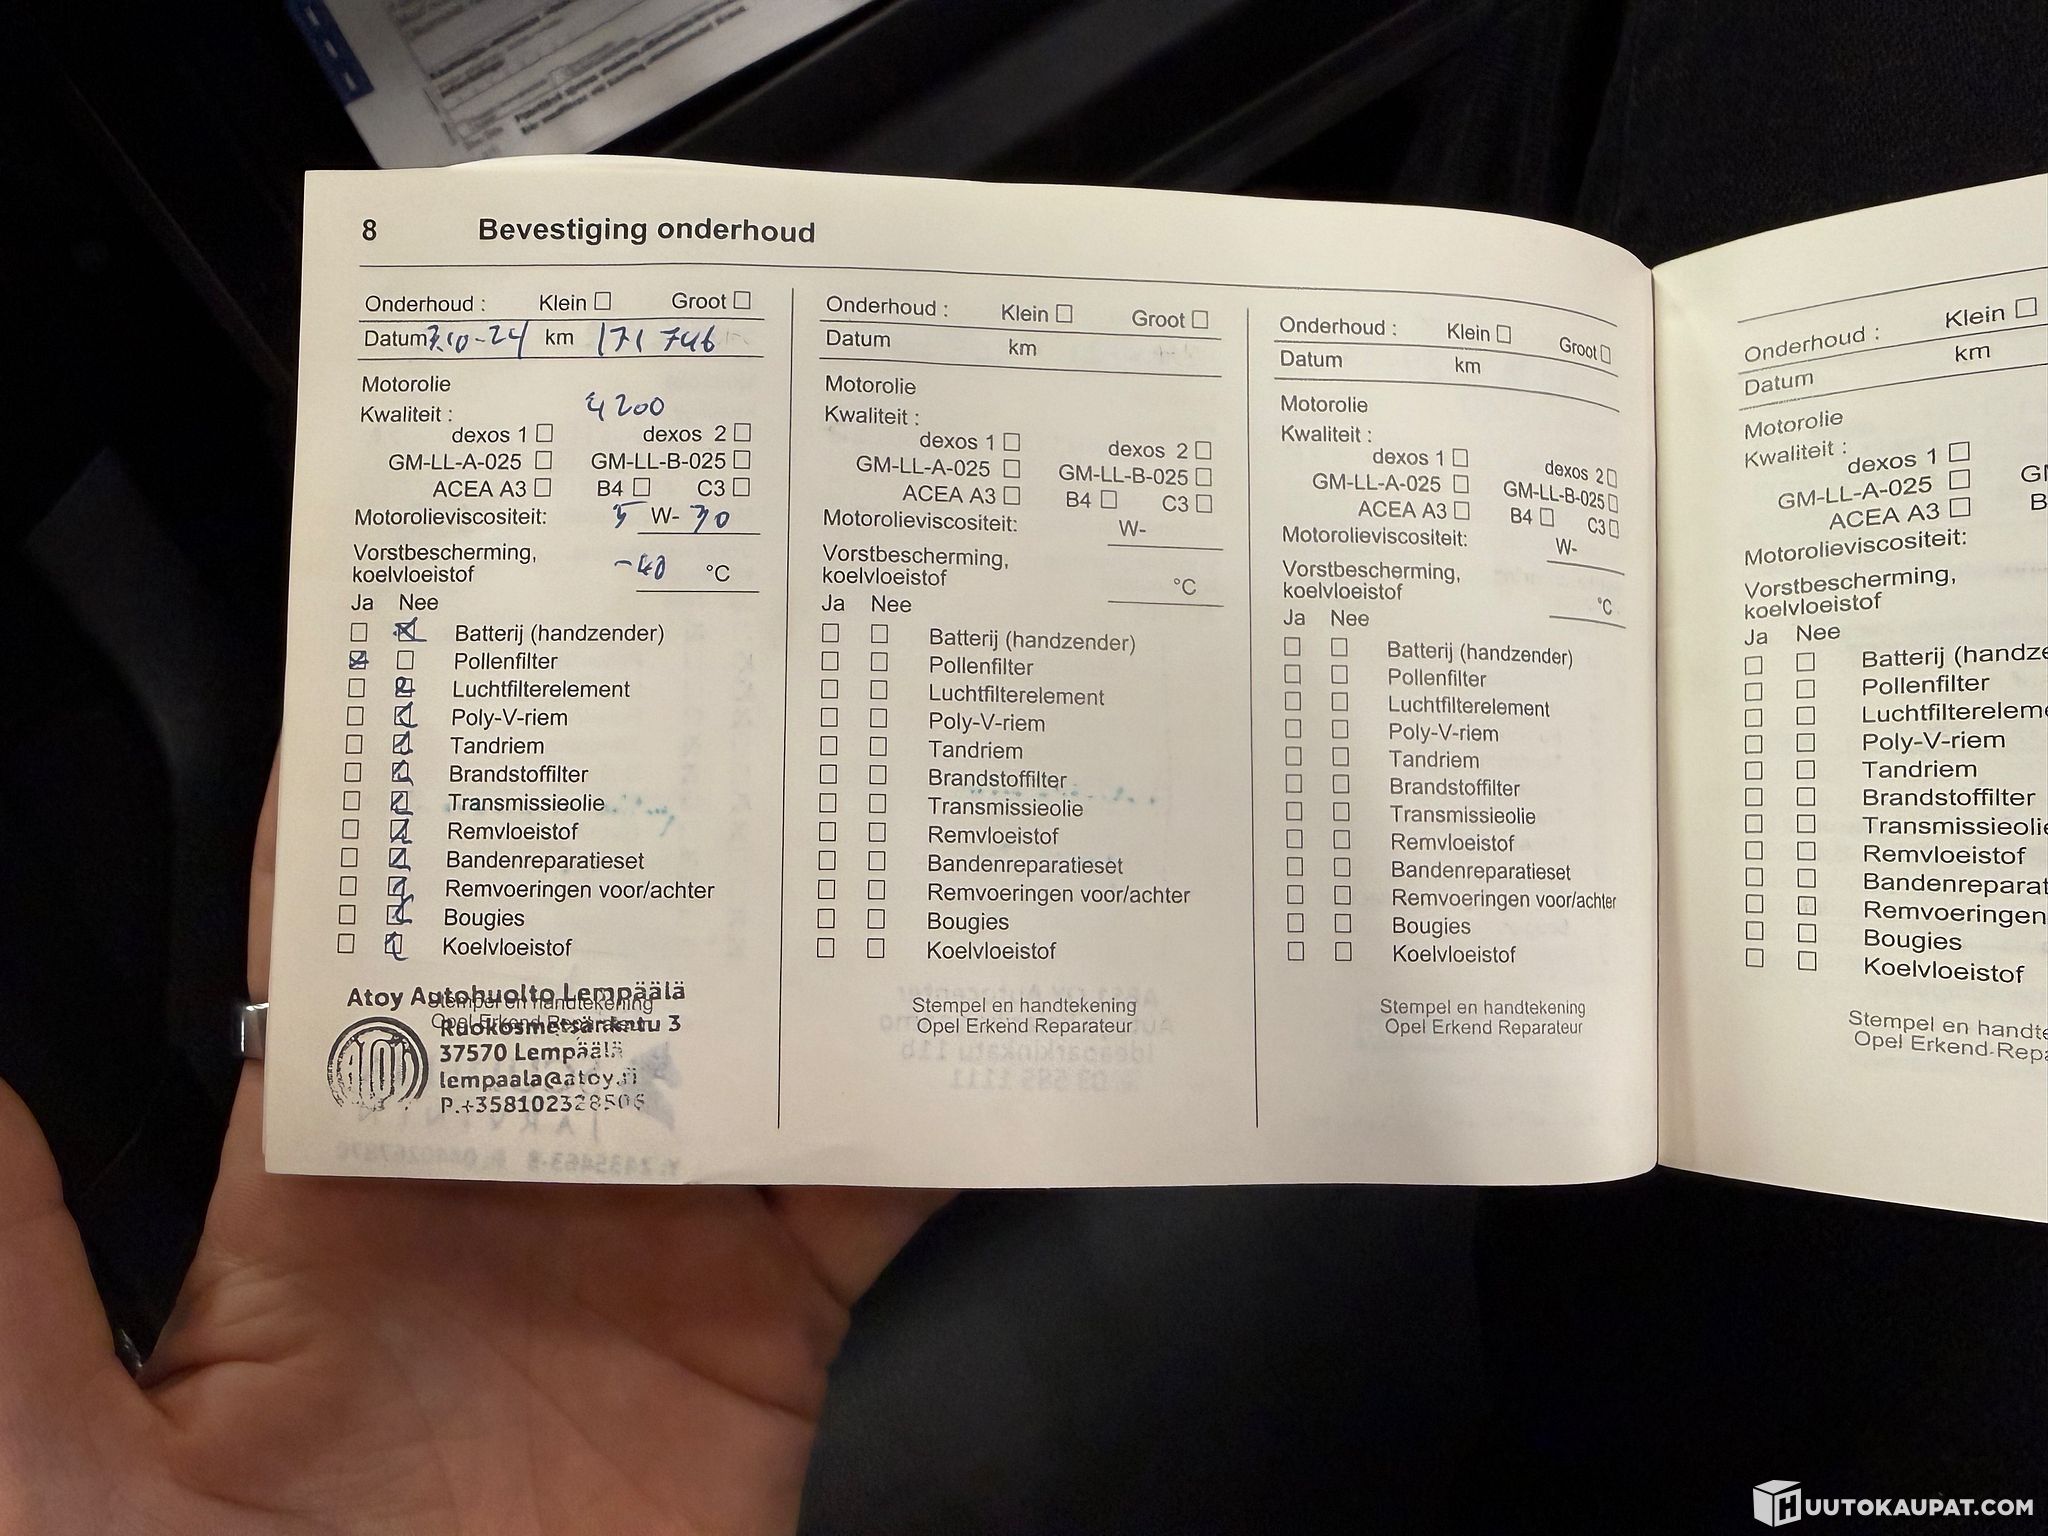 8 Bevestiging onderhoud
Onderhoud : Klein Groot
Datum 7.10-24 km 171 746
Motorolie
Kwaliteit : 4200
dexos 1 dexos 2
GM-LL-A-025 GM-LL-B-025
ACEA A3 B4 C3
Motorolieviscositeit: 5 W- 30
Vorstbescherming,
koelvloeistof -40 °C
Ja Nee
Batterij (handzender)
Pollenfilter
Luchtfilterelement
Poly-V-riem
Tandriem
Brandstoffilter
Transmissieolie
Remvloeistof
Bandenreparatieset
Remvoeringen voor/achter
Bougies
Koelvloeistof
Atoy Autohuolto Lempäälä
Stempel en handtekening
Opel Erkend Reparateur
Ruokosmetsärantu 3
37570 Lempäälä
lempaala@atoy.fi
P.+358102328506
Onderhoud : Klein Groot
Datum km
Motorolie
Kwaliteit :
dexos 1 dexos 2
GM-LL-A-025 GM-LL-B-025
ACEA A3 B4 C3
Motorolieviscositeit: W-
Vorstbescherming,
koelvloeistof °C
Ja Nee
Batterij (handzender)
Pollenfilter
Luchtfilterelement
Poly-V-riem
Tandriem
Brandstoffilter
Transmissieolie
Remvloeistof
Bandenreparatieset
Remvoeringen voor/achter
Bougies
Koelvloeistof
Stempel en handtekening
Opel Erkend Reparateur
Onderhoud : Klein Groot
Datum km
Motorolie
Kwaliteit :
dexos 1 dexos 2
GM-LL-A-025 GM-LL-B-025
ACEA A3 B4 C3
Motorolieviscositeit: W-
Vorstbescherming,
koelvloeistof °C
Ja Nee
Batterij (handzender)
Pollenfilter
Luchtfilterelement
Poly-V-riem
Tandriem
Brandstoffilter
Transmissieolie
Remvloeistof
Bandenreparatieset
Remvoeringen voor/achter
Bougies
Koelvloeistof
Stempel en handtekening
Opel Erkend Reparateur
Onderhoud : Klein
Datum km
Motorolie
Kwaliteit :
dexos 1
GM-LL-A-025 GM
ACEA A3 B
Motorolieviscositeit:
Vorstbescherming,
koelvloeistof
Ja Nee
Batterij (handze
Pollenfilter
Luchtfiltereleme
Poly-V-riem
Tandriem
Brandstoffilter
Transmissieolie
Remvloeistof
Bandenreparat
Remvoeringen
Bougies
Koelvloeistof
Stempel en handte
Opel Erkend Repa
HUUTOKAUPAT.COM